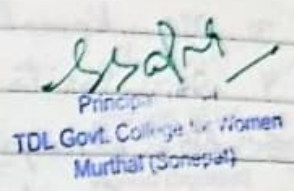 Principal
TDL Govt. College for Women
Murthal (Sonepat)